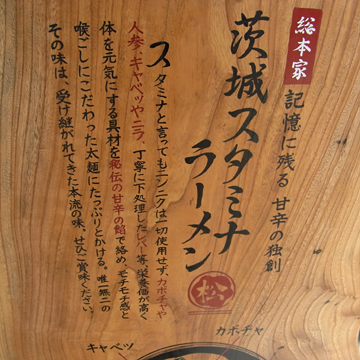 総本家
記憶に残る 甘辛の独創
茨城スタミナ
ラーメン
松
スタミナと言ってもニンニクは一切使用せず、カボチャや
人参・キャベツやニラ、丁寧に下処理したレバー等、栄養価が高く
体を元気にする具材を秘伝の甘辛の餡で絡め、モチモチ感と
喉ごしにこだわった太麺にたっぷりとかける。唯一無二の
その味は、受け継がれてきた本流の味。ぜひご賞味ください。
カボチャ
キャベツ